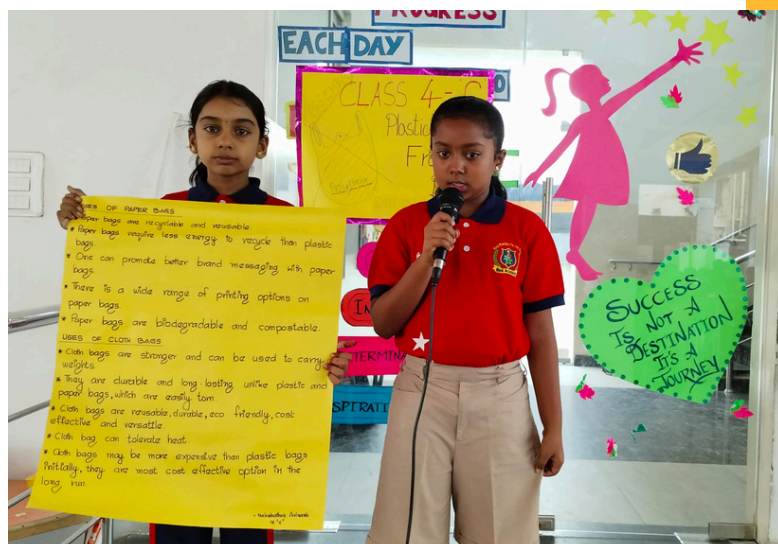 PROGRESS
EACH DAY
CLASS 4-
Plastic
Fr
USES OF PAPER BAGS
Paper bags are recyclable and reusable.
* Paper bags require less energy to recycle than plastic
bags.
* One can promote better brand messaging with paper
bags.
* There is a wide range of printing options on
paper bags.
* Paper bags are biodegradable and compostable.
USES OF CLOTH BAGS
* Cloth bags are stronger and can be used to carry
weights
* They are durable and long-lasting unlike plastic and
paper bags, which are easily torn
* Cloth bags are reusable, durable, eco friendly, cost
effective and versatile.
* Cloth bag can tolerate heat
* Cloth bags may be more expensive than plastic bags
initially, they are most cost effective option in the
long run.
SUCCESS
IS NOT A
DESTINATION
IT'S A
JOURNEY